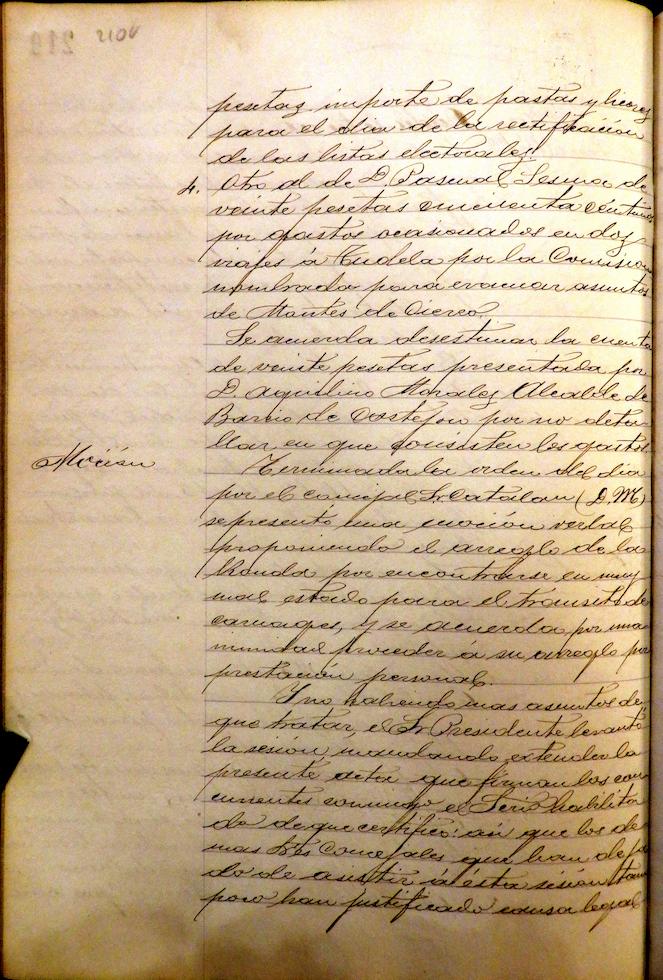 210v
pesetas, importe de pastas y licores
para el dia de la rectificación
de las listas electorales.
4. Otro al de D. Pascual Sesma de
veinte pesetas cincuenta céntimos
por gastos ocasionados en dos
viajes á Tudela por la Comision
nombrada para evacuar asuntos
de Montes de Cierzo.
Se acuerda desestimar la cuenta
de veinte pesetas presentada por
D. Aquilino Morales Alcalde de
Barrio de Castejon por no deta-
llar en que consisten los gastos.
Moción
Terminada la orden del dia
por el concejal Sr. Catalan (D. M)
se presentó una moción verbal
proponiendo el arreglo de la
Ronda por encontrarse en muy
mal estado para el tránsito de
carruages, y se acuerda por una
nimidad proceder a su arreglo por
prestación personal.
Y no habiendo mas asuntos de
que tratar, el Sr. Presidente levantó
la sesión mandando extender la
presente acta que firman los con
currentes conmigo el Scrio habilita
do de que certifico: asi que los de
mas Sres Concejales que han deja
do de asistir á ésta sesión tam
poco han justificado causa legal